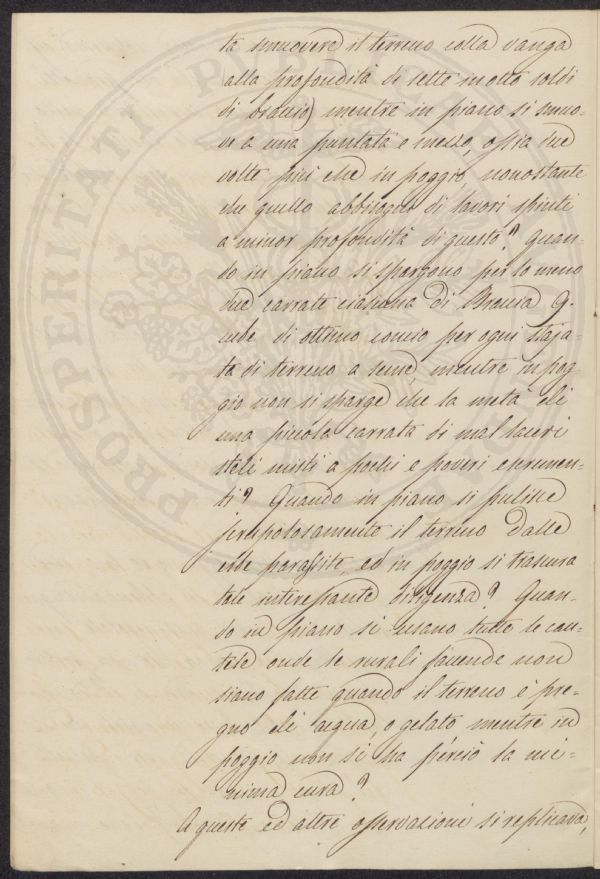 ta smuovere il terreno colla vanga
(alla profondità di sette in otto soldi
di braccio) mentre in piano si smuo-
ve a una puntata e mezzo, ossia due
volte più che in poggio nonostante
che quello abbisogni di lavori spinti
a minor profondità di questo? Quan-
do in piano si spargono per lo meno
due carrate ciascuna di Braccia 9.
cube di ottimo concio per ogni staja-
ta di terreno a seme, mentre in pog-
gio non si sparge che la metà di
una piccola carrata di mal maceri
steli misti a pochi e poveri escremen-
ti? Quando in piano si pulisce
scrupolosamente il terreno dalle
erbe parassite, ed in poggio si trascura
tale interessante diligenza? Quan-
do in piano si usano tutte le cau-
tele onde le rurali faccende non
siano fatte quando il terreno è pre-
gno di acqua, o gelato mentre in
poggio non si ha perciò la mi-
nima cura?
A queste ed altre osservazioni si replicava,
PROSPERITATI